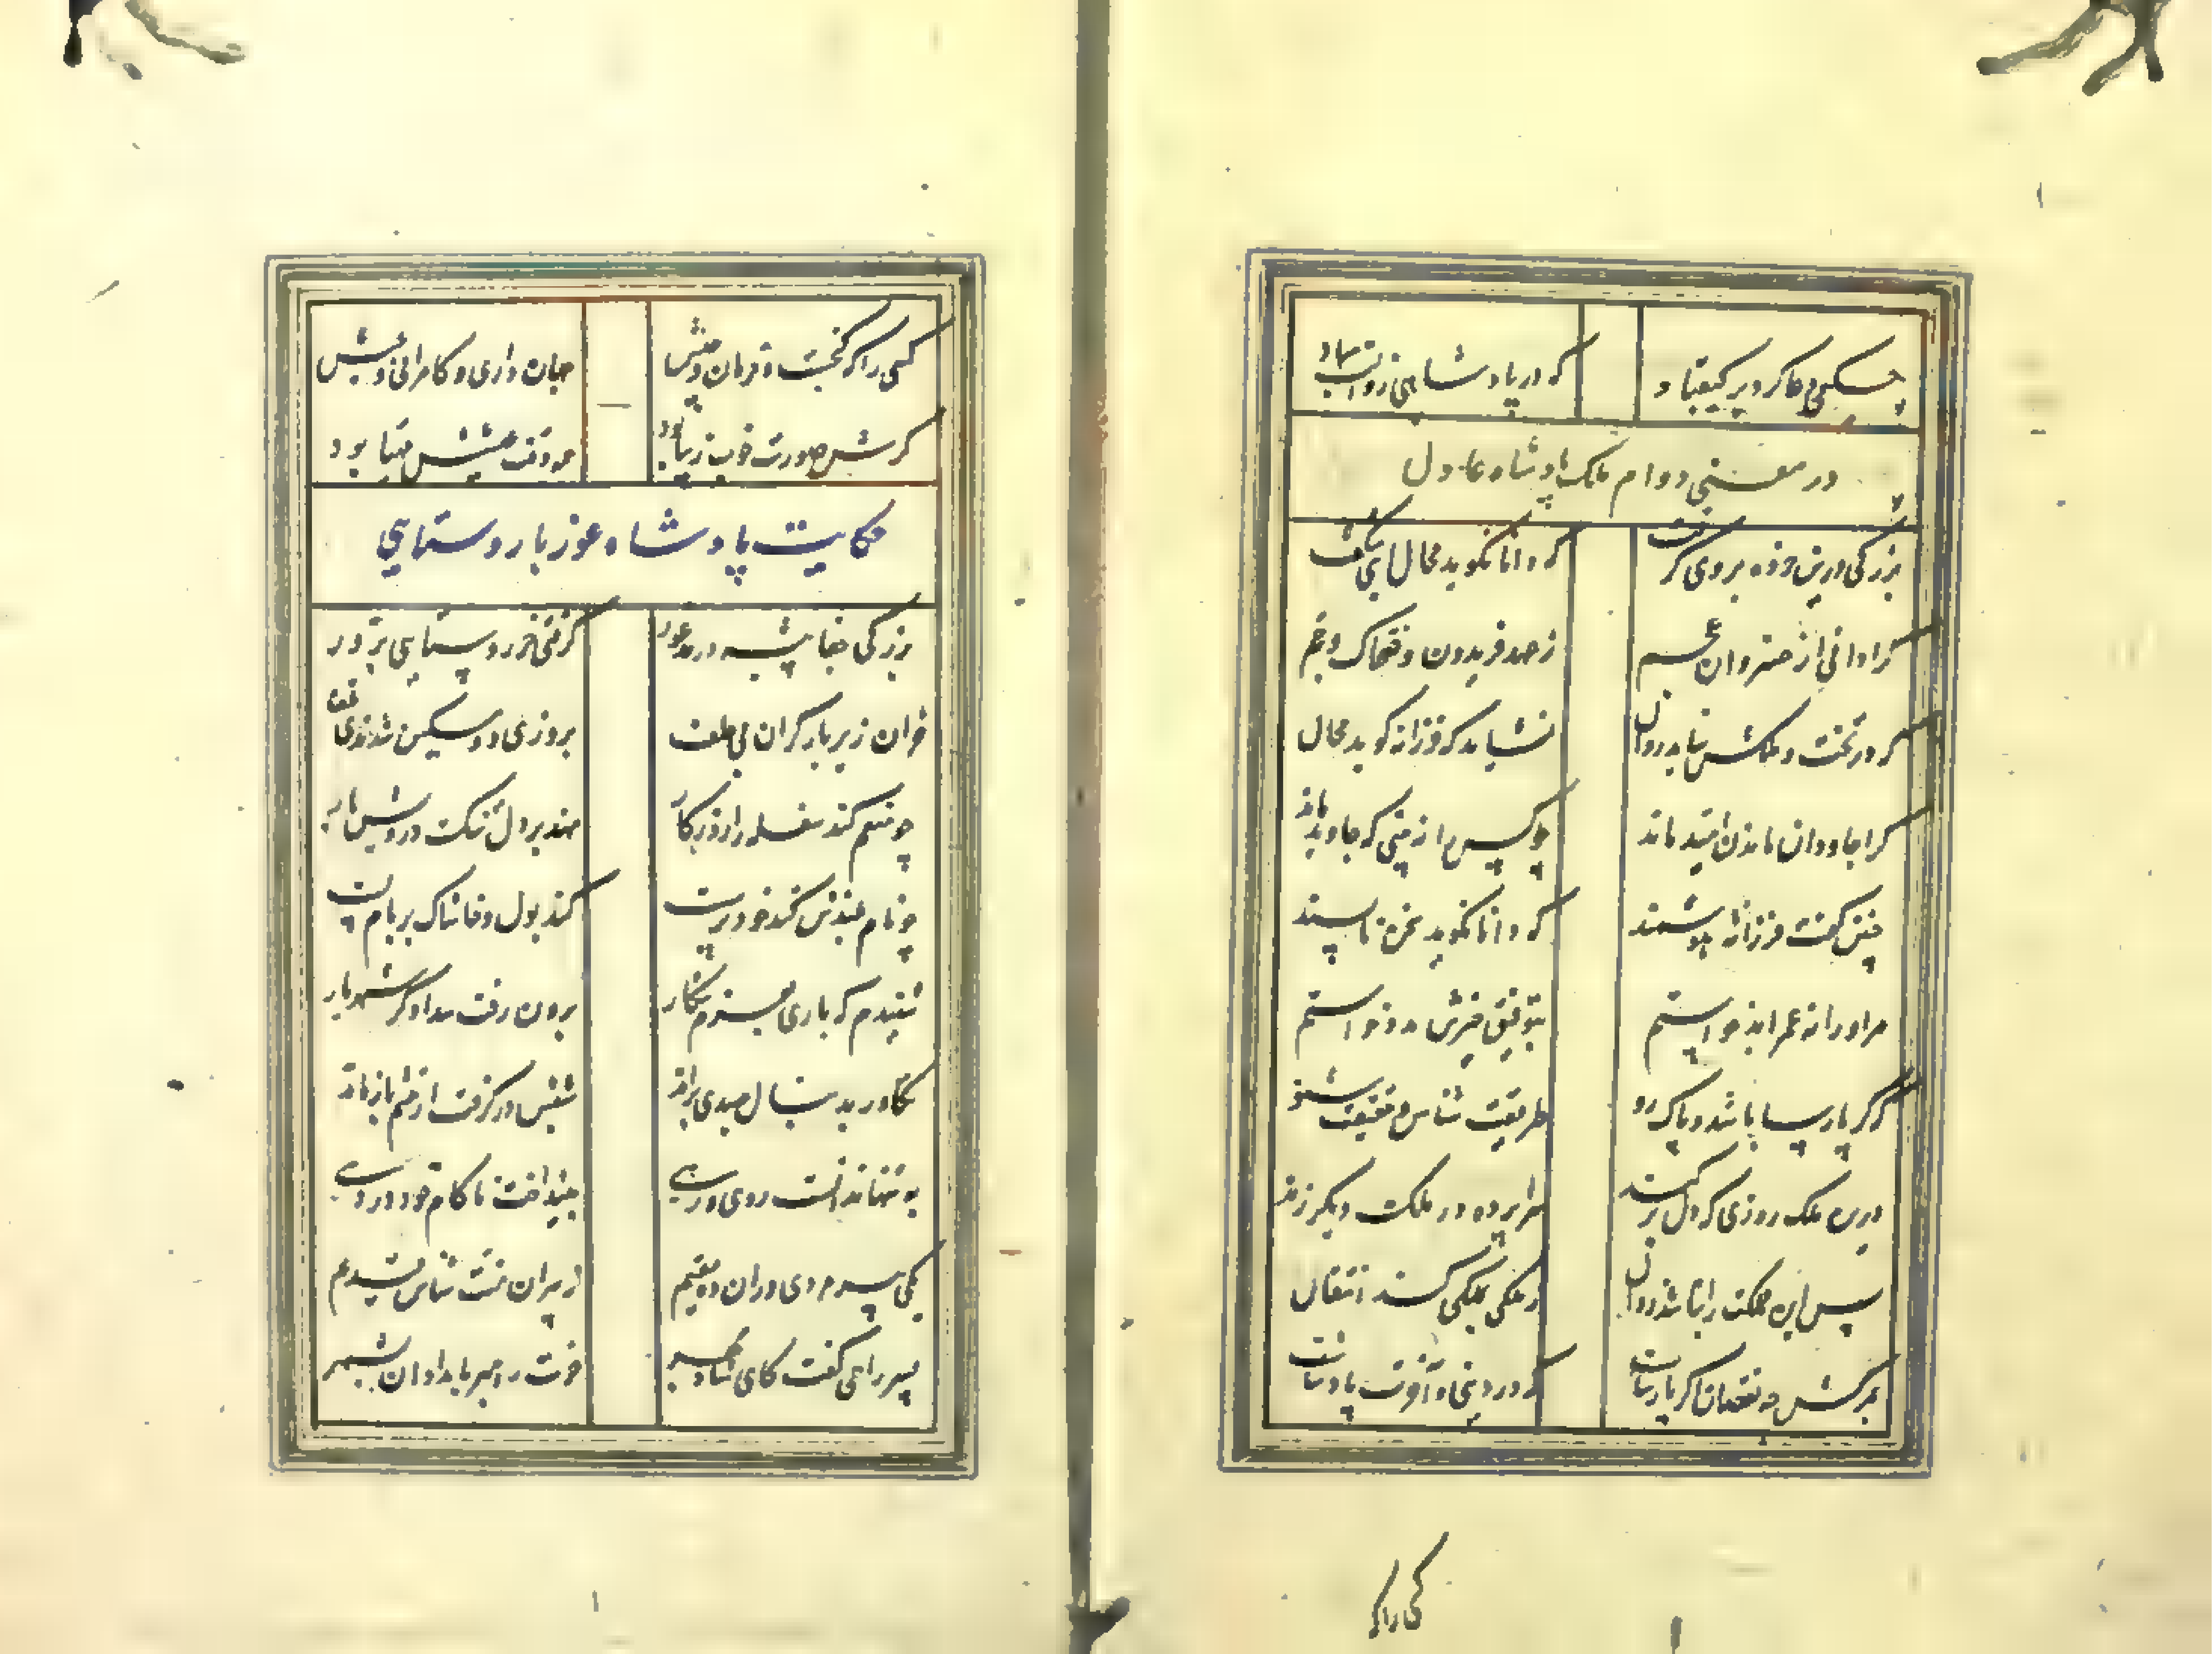 حکیمی دعا کرد بر کیقباد که در پادشاهی زوالت مباد
در معنی دوام ملک پادشاه عادل
بزرگی درین خرده بر وی گرفت که دانا نگوید محال ای شگفت
کرا دانی از خسروان عجم ز عهد فریدون و ضحاک و جم
که در تخت و ملکش نیاید زوال نشاید که فرزانه گوید محال
کرا جاودان ماندن امید ماند چو کس را نبینی که جاوید ماند
چنین گفت فرزانه هوشمند که دانا نگوید سخن ناپسند
مر او را نه عمر ابد خواستم بتوفیق خیرش مدد خواستم
که گر پارسا باشد و پاک رو طریقت شناس و حقیقت شنو
درین ملک روزی که دل بر کند سراپرده در ملک دیگر زند
پس این مملکت را نباشد زوال ز ملکی بملکی کند انتقال
ز مرگش چه نقصان اگر پارساست که در دنیی و آخرت پادشاست
کسی را که
کسی را که گنجست و فرمان و جیش جهان داری و کامرانی و عیش
گرش صورت خوب زیبا بود همه وقت عیشش مهیا بود
حکایت پادشاه غور با روستایی
بزرگی جفا پیشه در حد غور گرفتی خر روستایی بزور
خران زیر بار گران بی علف بروزی دو مسکین شدندی تلف
چو منعم کند سفله را روزگار نهد بر دل تنگ درویش بار
چو بام بلندش کند خودپرست کند بول و خاشاک بر بام پست
شنیدم که باری بعزم شکار برون رفت بیدادگر شهریار
تکاور بدنبال صیدی براند شبش در گرفت از حشم باز ماند
به تنها ندانست روی و رهی بینداخت ناکام خود در دهی
یکی پیرمردی در آن ده مقیم ز پیران مردم شناس قدیم
پسر را همی گفت کای شاد بهر خرت را مبر بامدادان بشهر